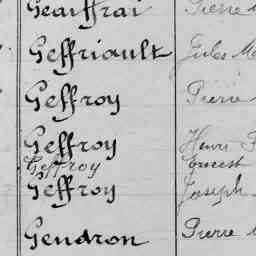 Geauffrai Pierre
Geffriault Jules
Geffroy Pierre
Geffroy Henri
Geffroy Ernest
Geffroy Joseph
Gendron Pierre